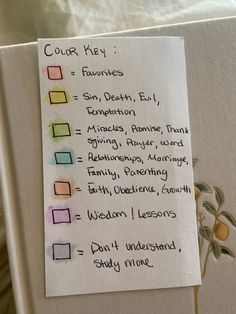 Color Key :
= Favourites
= Sin, Death, Evil,
Temptation
= Miracles, Promise, Thank
sgiving, Prayer, Word
= Relationships, Marriage,
Family, Parenting
= Faith, Obedience, Growth
= Wisdom / Lessons
= Don't understand,
study more